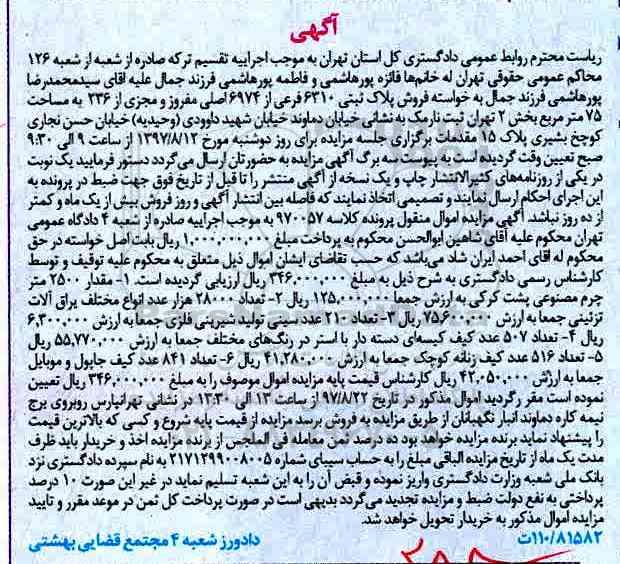 آگهی
ریاست محترم روابط عمومی دادگستری کل استان تهران به موجب اجراییه تقسیم ترکه صادره از شعبه از شعبه ۱۲۶
محاکم عمومی حقوقی تهران له خانم‌ها فائزه پورهاشمی و فاطمه پورهاشمی فرزند جمال علیه اقای سیدمحمدرضا
پورهاشمی فرزند جمال به خواسته فروش پلاک ثبتی ۶۳۱۰ فرعی از ۶۹۷۴ اصلی مفروز و مجزی از ۲۳۶ به مساحت
۷۵ متر مربع بخش ۲ تهران ثبت نارمک به نشانی خیابان دماوند خیابان شهید داوودی (وحیدیه) خیابان حسن نجاری
کوچخ بشیری پلاک ۱۵ مقدمات برگزاری جلسه مزایده برای روز دوشنبه مورخ ۱۳۹۷/۸/۱۲ از ساعت ۹ الی ۹:۳۰
صبح تعیین وقت گردیده است به پیوست سه برگ آگهی مزایده به حضورتان ارسال می‌گردد دستور فرمایید یک نوبت
در یکی از روزنامه‌های کثیرالانتشار چاپ و یک نسخه از آگهی منتشر را تا قبل از تاریخ فوق جهت ضبط در پرونده به
این اجرای احکام ارسال نمایند و تصمیمی اتخاذ نمایند که فاصله بین انتشار آگهی و روز فروش بیش از یک ماه و کمتر
از ده روز نباشد. آگهی مزایده اموال منقول پرونده کلاسه ۹۷۰۰۵۷ به موجب اجراییه صادره از شعبه ۴ دادگاه عمومی
تهران محکوم علیه آقای شاهین ابوالحسن محکوم به پرداخت مبلغ ۱,۰۰۰,۰۰۰,۰۰۰ ریال بابت اصل خواسته در حق
محکوم له اقای احمد ایران شاد می‌باشد که حسب تقاضای ایشان اموال ذیل متعلق به محکوم علیه توقیف و توسط
کارشناس رسمی دادگستری به شرح ذیل به مبلغ ۳۴۶,۰۰۰,۰۰۰ ریال ارزیابی گردیده است. ۱- مقدار ۲۵۰۰ متر
چرم مصنوعی پشت کرکی به ارزش جمعا ۱۲۵,۰۰۰,۰۰۰ ریال ۲- تعداد ۲۸۰۰۰ هزار عدد انواع مختلف یراق آلات
تزئینی جمعا به ارزش ۷۵,۶۰۰,۰۰۰ ریال ۳- تعداد ۲۱۰ عدد سینی تولید شیرینی فلزی جمعا به ارزش ۶,۳۰۰,۰۰۰
ریال ۴- تعداد ۵۰۷ عدد کیف کیسه‌ای دسته دار با استر در رنگ‌های مختلف جمعا به ارزش ۵۵,۷۷۰,۰۰۰ ریال
۵- تعداد ۵۱۶ عدد کیف زنانه کوچک جمعا به ارزش ۴۱,۲۸۰,۰۰۰ ریال ۶- تعداد ۸۴۱ عدد کیف جاپول و موبایل
جمعا به ارزش ۴۲,۰۵۰,۰۰۰ ریال کارشناس قیمت پایه مزایده اموال موصوف را به مبلغ ۳۴۶,۰۰۰,۰۰۰ ریال تعیین
نموده است مقر رگردید اموال مذکور در تاریخ ۹۷/۸/۲۲ از ساعت ۱۳ الی ۱۳:۳۰ در نشانی تهرانپارس روبروی برج
نیمه کاره دماوند انبار نگهبانان از طریق مزایده به فروش برسد مزایده از قیمت پایه شروع و کسی که بالاترین قیمت
را پیشنهاد نماید برنده مزایده خواهد بود ده درصد ثمن معامله فی المجلس از برنده مزایده اخذ و خریدار باید ظرف
مدت یک ماه از تاریخ مزایده الباقی مبلغ را به حساب سیبای شماره ۲۱۷۱۲۹۹۰۰۸۰۰۵ به نام سپرده دادگستری نزد
بانک ملی شعبه وزارت دادگستری واریز نموده و قبض آن را به این شعبه تسلیم نماید در غیر این صورت ۱۰ درصد
پرداختی به نفع دولت ضبط و مزایده تجدید می‌گردد بدیهی است در صورت پرداخت کل ثمن در موعد مقرر و تایید
مزایده اموال مذکور به خریدار تحویل خواهد شد.
۱۱۰/۸۱۵۸۲ت
دادورز شعبه ۴ مجتمع قضایی بهشتی